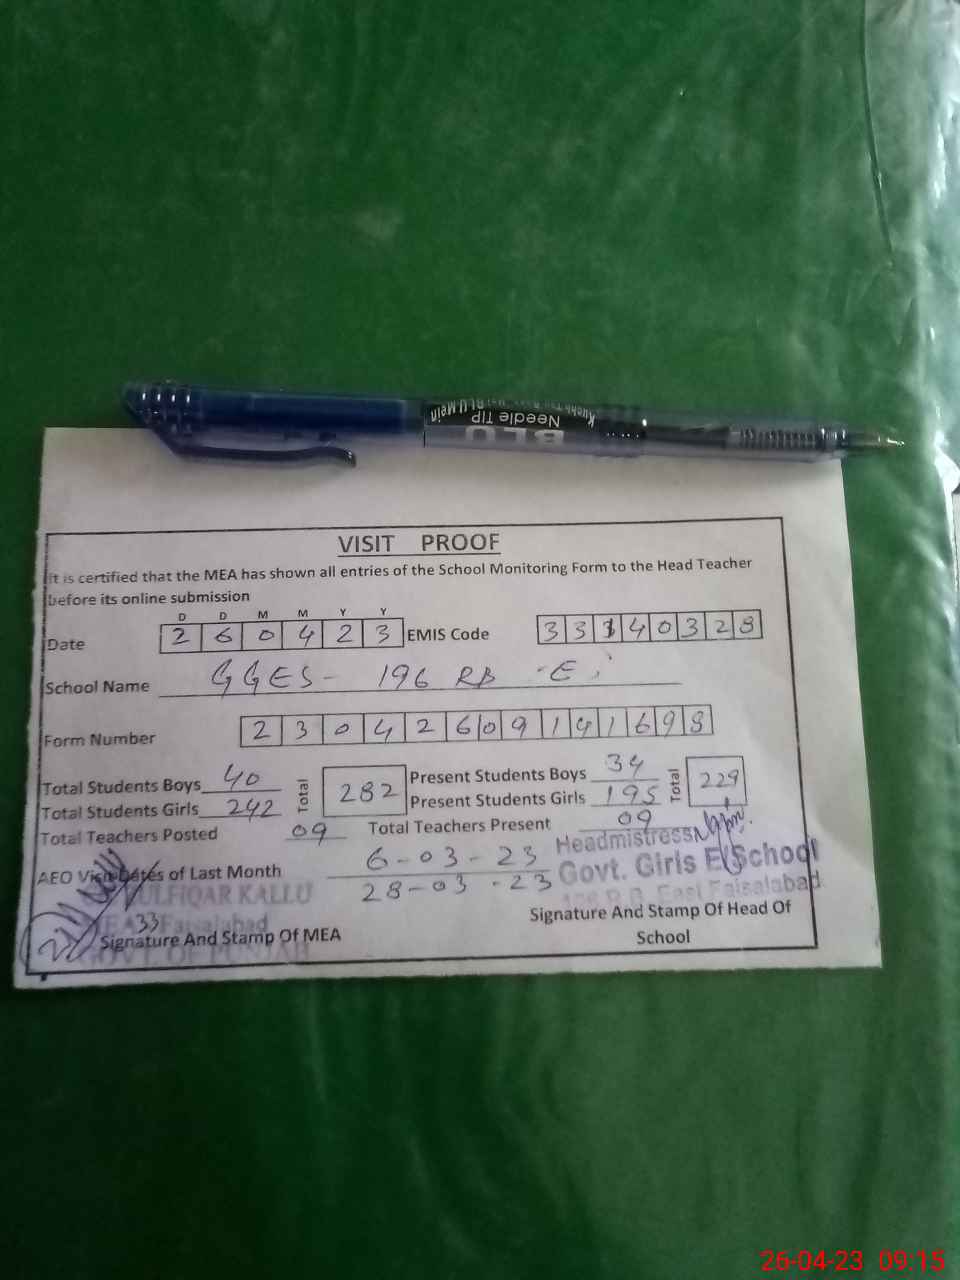 Kuchh Tou Baat Hai BLU Mein
Needle TIP
BLU
VISIT PROOF
It is certified that the MEA has shown all entries of the School Monitoring Form to the Head Teacher
before its online submission
D D M M Y Y
Date 2 6 0 4 2 3 EMIS Code 3 3 1 4 0 3 2 8
School Name GGES- 196 RB -E
Form Number 2 3 0 4 2 6 0 9 1 4 1 6 9 8
Total Students Boys 40 Total 282 Present Students Boys 34 Total 229
Total Students Girls 242 Present Students Girls 195
Total Teachers Posted 09 Total Teachers Present 09
Headmistress
AEO Visit Dates of Last Month 6-03-23
28-03-23
Govt. Girls E/School
196 R.B. East Faisalabad
ZULFIQAR KALLU
MEA 33 Faisalabad
GOVT. OF PUNJAB
Signature And Stamp Of MEA
Signature And Stamp Of Head Of
School
26-04-23 09:15